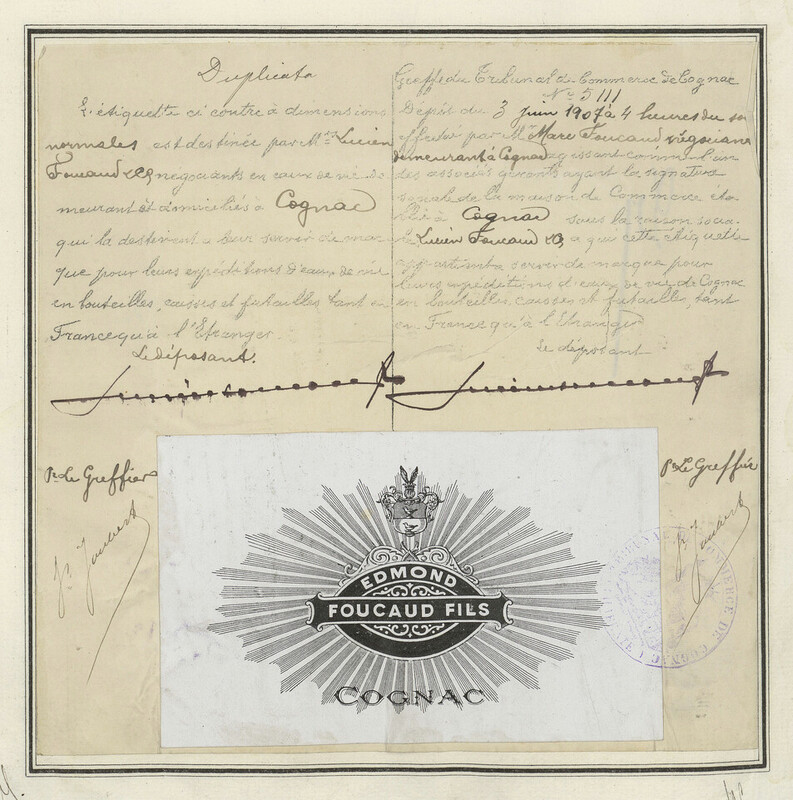 Duplicata
L'étiquette ci contre à dimensions
normales est destinée par Mrs Lucien
Foucaud & Co négociants en eaux de vie de
meurant et domiciliés à Cognac
qui la destinent à leur servir de mar
que pour leurs expéditions d'eaux de vie
en bouteilles, caisses et futailles tant en
France qu'à l'Etranger
Le déposant.
Greffe du Tribunal de Commerce de Cognac
No 5111
Dépôt du 3 juin 1907 à 4 heures du soir
effectué par Mr Marc Foucaud négociant
demeurant à Cognac agissant comme l'un
des associés gérants ayant la signature
sociale de la maison de Commerce éta
blie à Cognac sous la raison socia
le Lucien Foucaud & Co, à qui cette étiquette
appartient servir de marque pour
leurs expéditions d'eaux de vie de Cognac
en bouteilles, caisses et futailles, tant
en France qu'à l'Etranger
Le déposant
Pr Le Greffier
Pr Le Greffier
Joubert
Joubert
EDMOND
FOUCAUD FILS
COGNAC
COMMERCE DE COGNAC